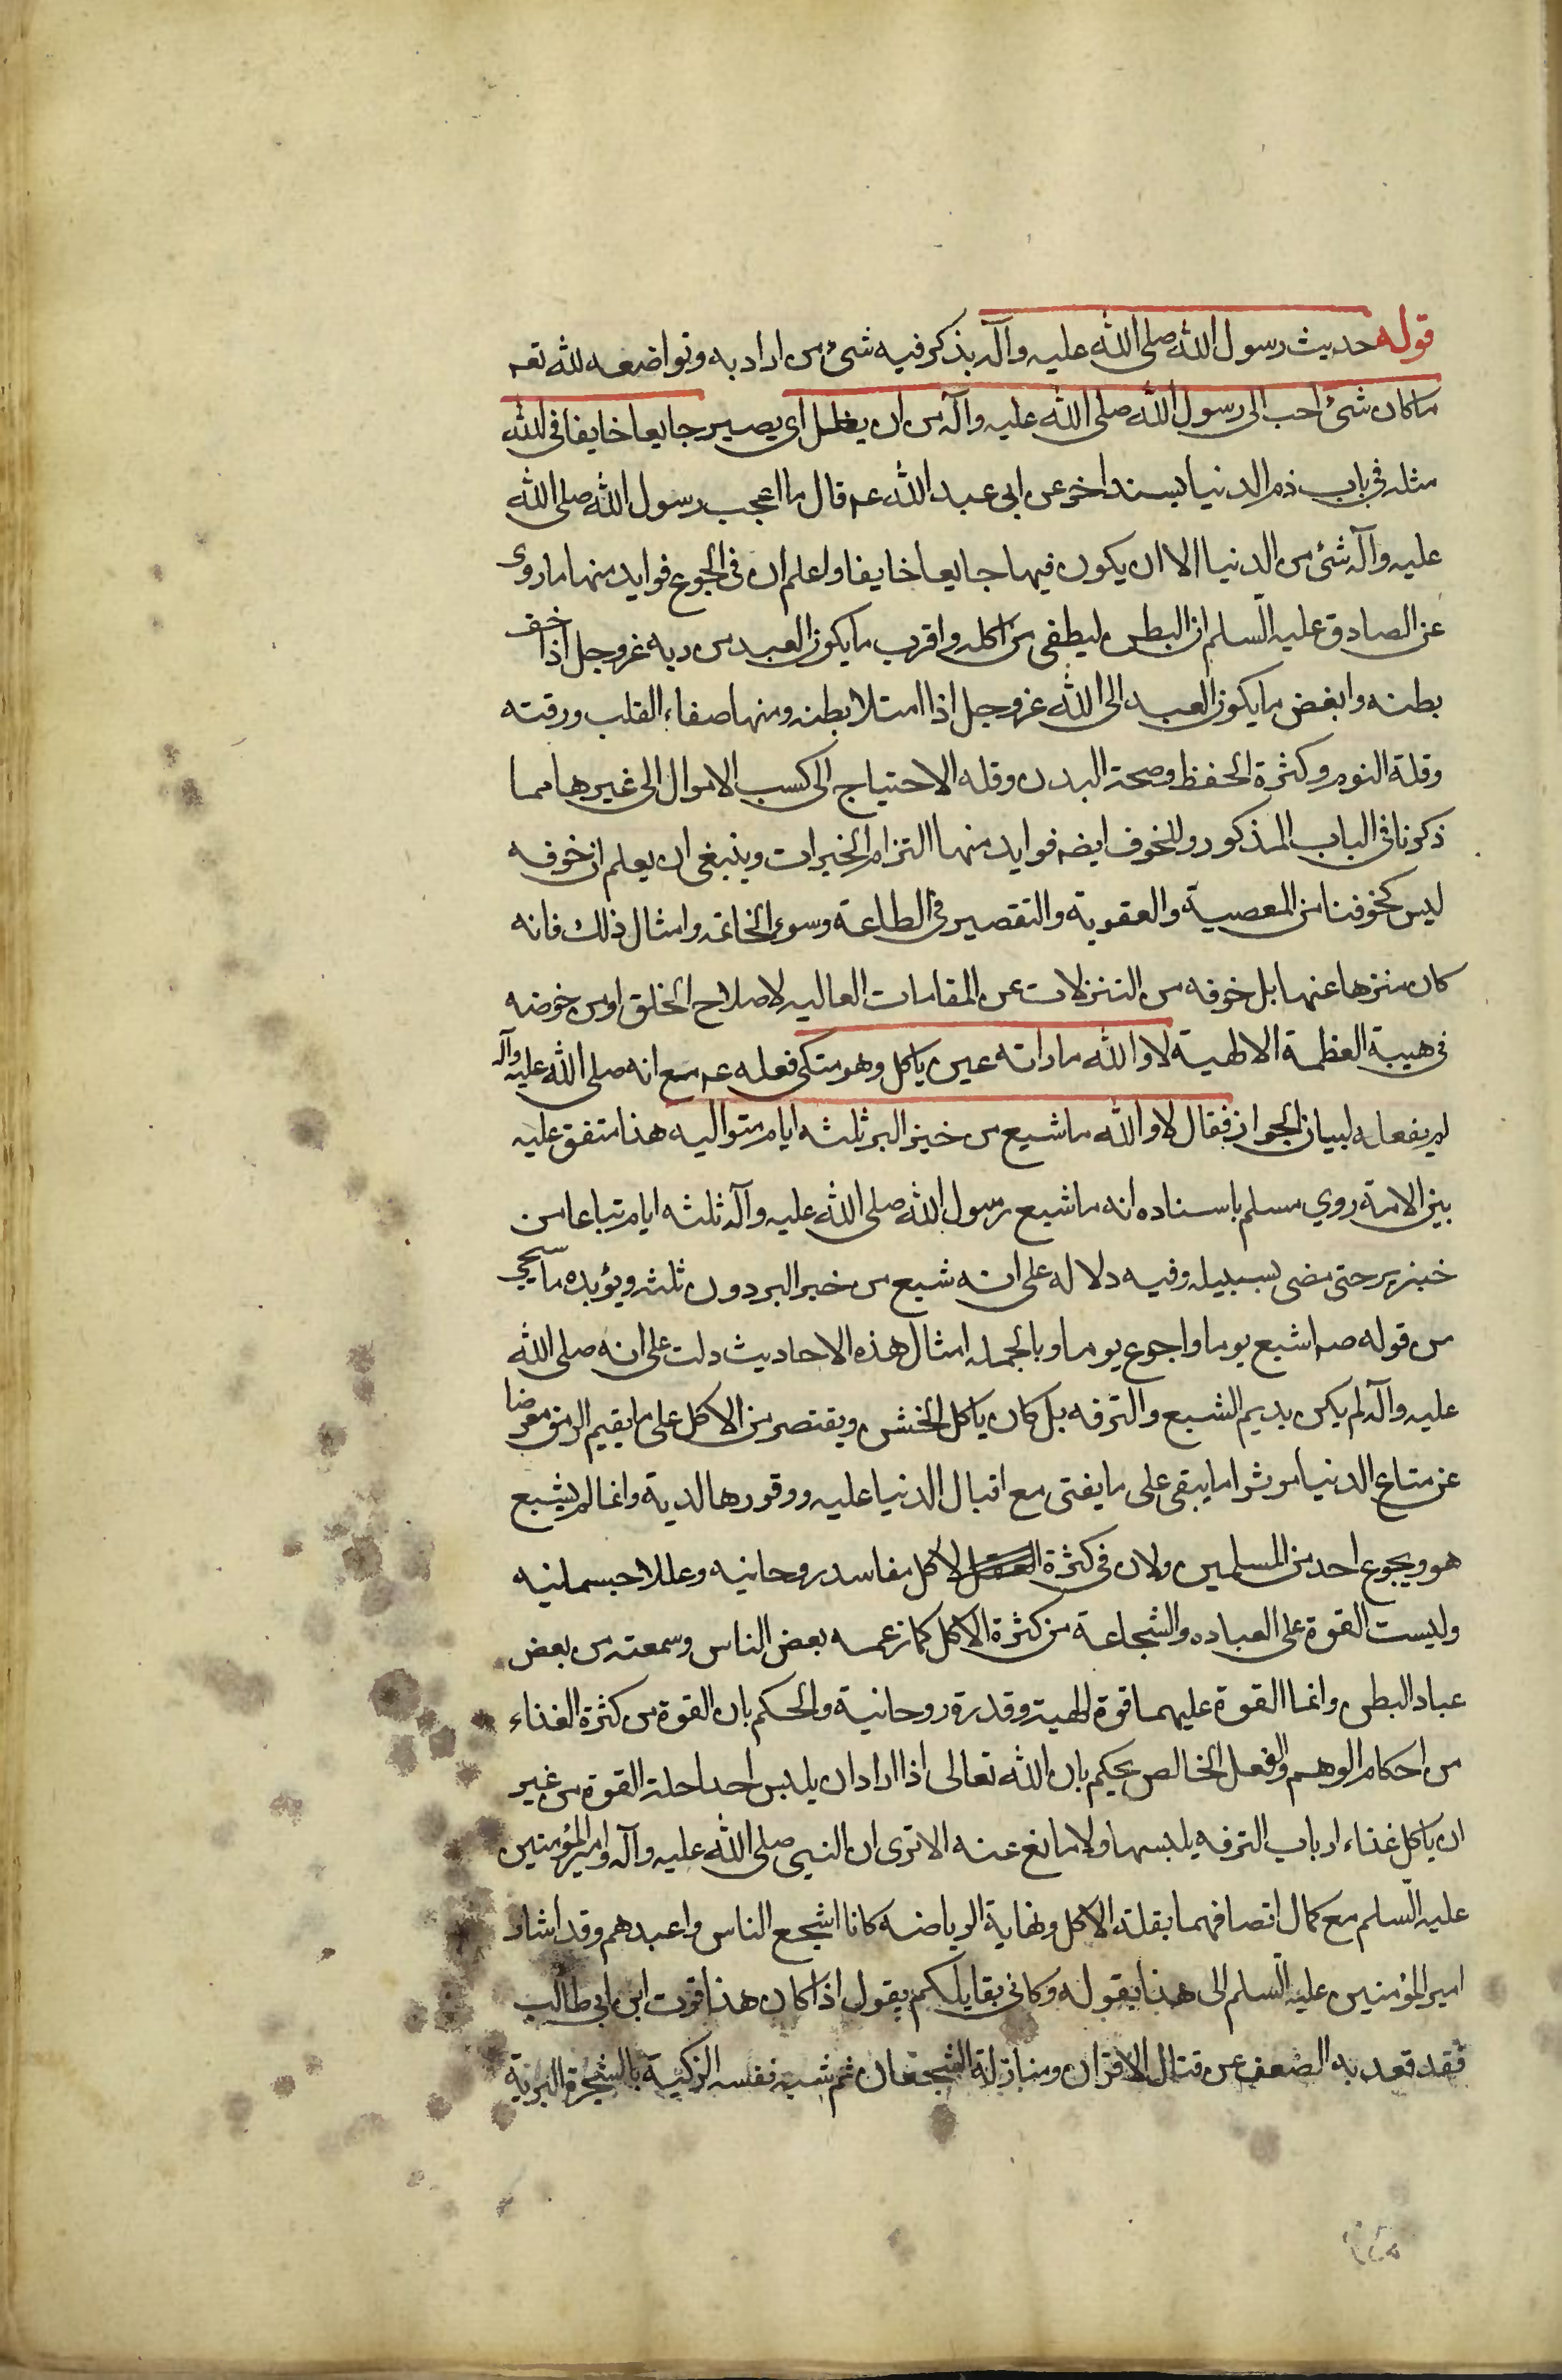 قوله حديث رسول الله صلى الله عليه وآله يذكر فيه شئ من ادابه وتواضعه لله تعه
ما كان شئ احب الى رسول الله صلى الله عليه وآله من ان يظل اى يصير جايعا خايفا فى الله
مثله فى باب ذم الدنيا بسند اخر عن ابى عبد الله عم قال ما اعجب رسول الله صلى الله
عليه وآله شئ من الدنيا الا ان يكون فيها جايعا خايفا واعلم ان فى الجوع فوايد منها ما روى
عن الصادق عليه السلم ان البطن ليطغى من اكله واقرب ما يكون العبد من ربه عز وجل اذا خف
بطنه وابغض ما يكون العبد الى الله عز وجل اذا امتلا بطنه ومنها صفاء القلب ورقته
وقلة النوم وكثرة الحفظ وصحة البدن وقله الاحتياج الى كسب الاموال الى غيرها مما
ذكرنا فى الباب المذكور وللخوف ايضه فوايد منها التزام الخيرات وينبغى ان يعلم ان خوفه
ليس كخوفنا من المعصية والعقوبة والتقصير فى الطاعة وسوء الخاتمه وامثال ذلك فانه
كان منزها عنها بل خوفه من التنزلات عن المقامات العاليه لاصلاح الخلق او من خوضه
فى هيبة العظمة الالهية لا والله ما راته عين ياكل وهو متكى فعله عم مع انه صلى الله عليه وآله
لم يفعله لبيان الجواز فقال لا والله ما شبع من خبز البر ثلثه ايام متواليه هذا متفق عليه
بين الامة روي مسلم باسناده انه ما شبع رسول الله صلى الله عليه وآله ثلثه ايام تباعا من
خبز بر حتى مضى بسبيله وفيه دلاله على انه شبع من خبز البر دون ثلث ويؤيده ما سيجي
من قوله صم اشبع يوما واجوع يوما وبالجمله امثال هذه الاحاديث دلت على انه صلى الله
عليه وآله لم يكن يديم الشبع والترفه بل كان ياكل الخشن ويقتصر من الاكل على ما يقيم الرمق معرضا
عن متاع الدنيا موثرا ما يبقى على ما يفنى مع اقبال الدنيا عليه ووقورها لديه وانما لم يشبع
هو ويجوع احد من المسلمين ولان فى كثرة الاكل مفاسد روحانيه وعللا جسمانيه
وليست القوة على العباده والشجاعة من كثرة الاكل كما زعمه بعض الناس وسمعته من بعض
عباد البطن وانما القوة عليهما قوة الهية وقدرة روحانية والحكم بان القوة من كثرة الغذاء
من احكام الوهم والعقل الخالص يحكم بان الله تعالى اذا اراد ان يلبس احدا حلة القوة من غير
ان ياكل غذاء ارباب الترفه يلبسها ولا مانع عنه الا ترى ان النبى صلى الله عليه وآله وامير المؤمنين
عليه السلم مع كمال اتصافهما بقلة الاكل ونهاية الرياضه كانا اشجع الناس واعبدهم وقد اشار
امير المؤمنين عليه السلم الى هذا بقوله وكانى بقايلكم يقول اذا كان هذا قوت ابن ابى طالب
فقد قعد به الضعف عن قتال الاقران ومنازلة الشجعان ثم شبه نفسه الزكية بالشجرة البرية